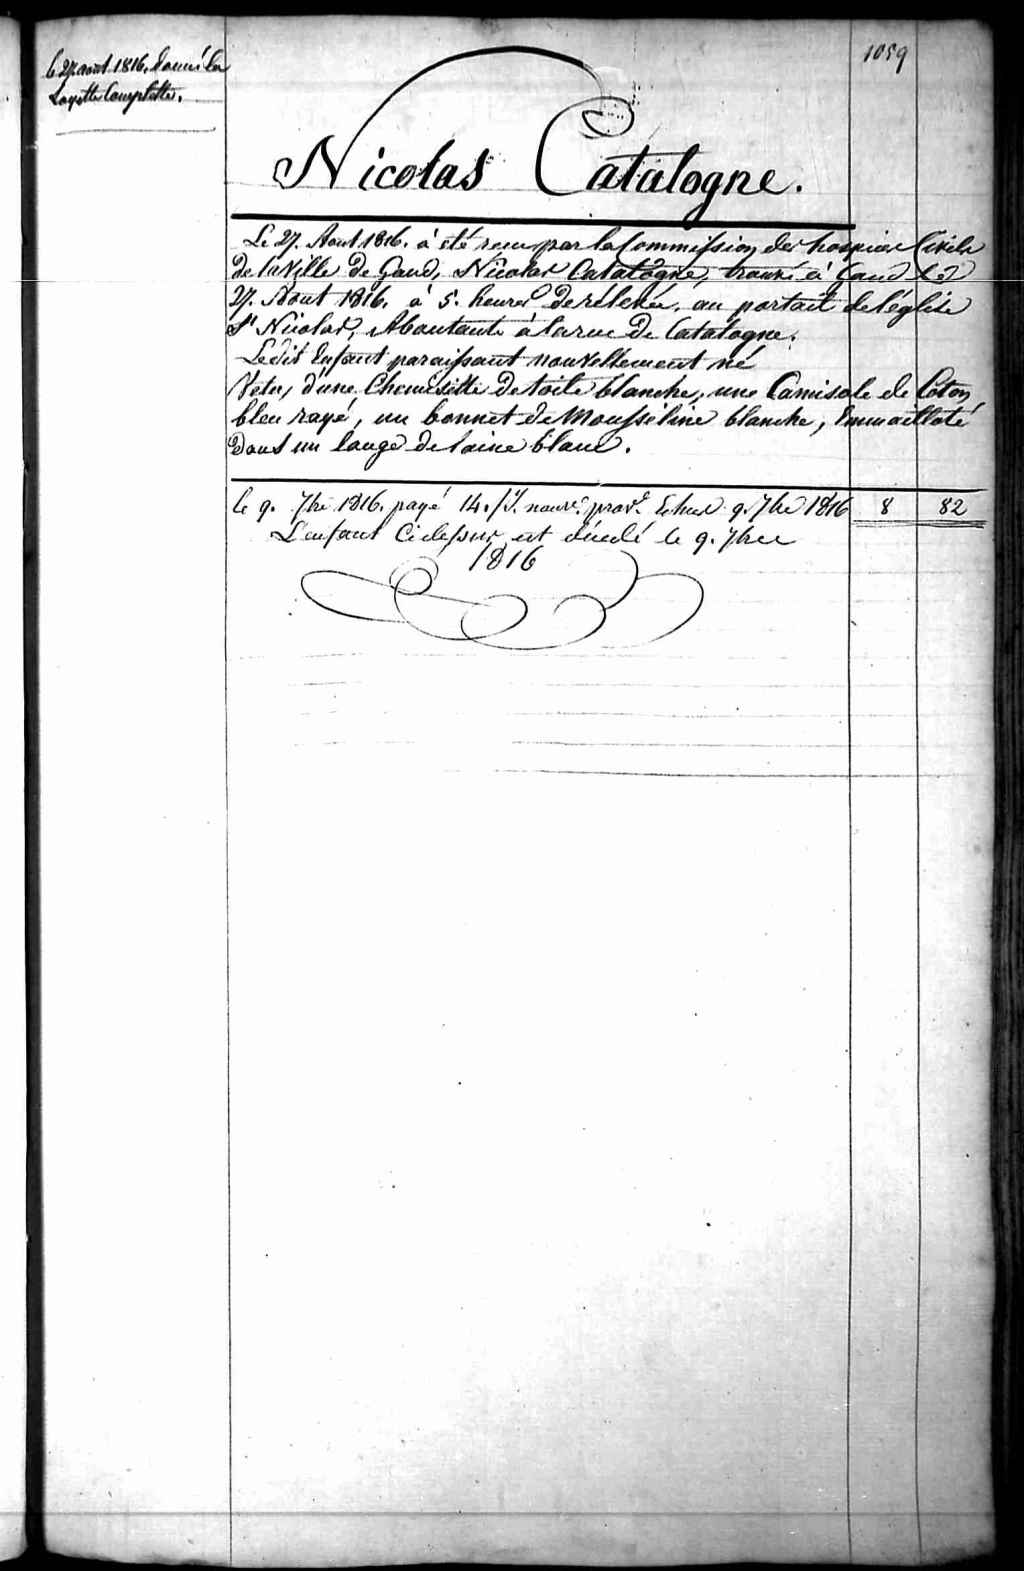 1059
le 27. aout 1816. donné la
Layette Complette.
Nicolas Catalogne.
Le 27. Aout 1816. à été recu par la Commission des hospices Civils
de la Ville de Gand, Nicolas Catalogne, trouvé à Gand led
27. Aout 1816. à 5. heures de rélevée, au portail de l'église
St Nicolas, Aboutante à la rue de Catalogne.
Ledit Enfant paraissant nouvellement né
Vetu, d'une Chemisette de toile blanche, une Camisole de Coton
bleu rayé, un bonnet de Mousseline blanche, Emmailloté
dans un lange de laine blanc.
le 9. 7bre 1816. payé 14. js. nourre provre Echue 9. 7bre 1816 8 82
L'enfant Cidessus est décédé le 9. 7bre
1816